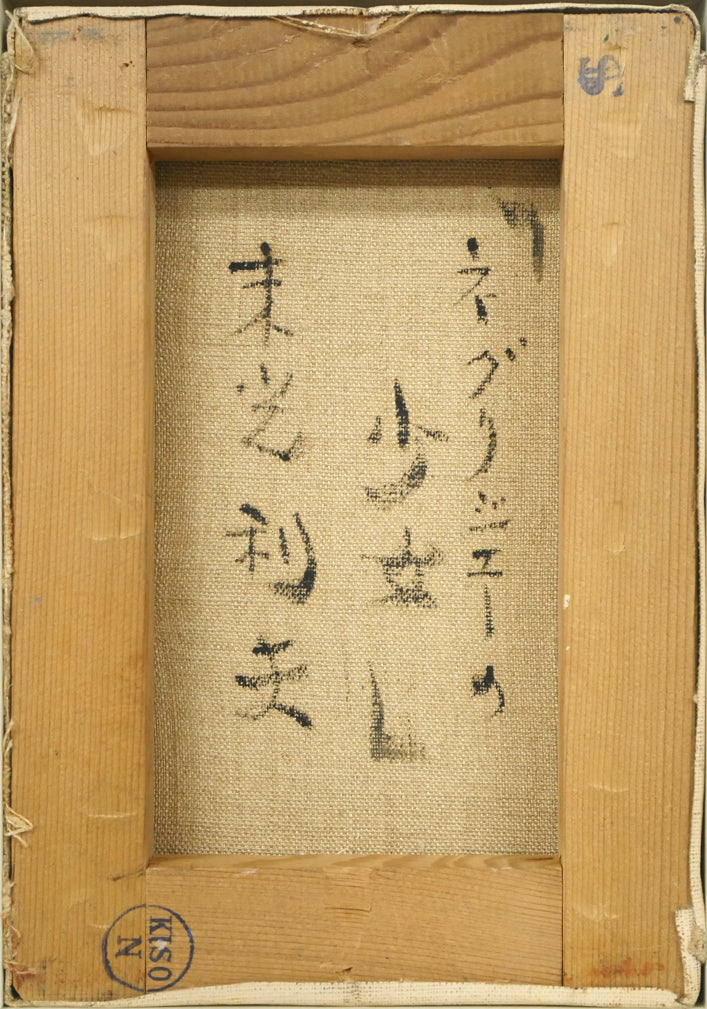 「ネグリジェーの
少女」
末光利夫
S
KISO
N